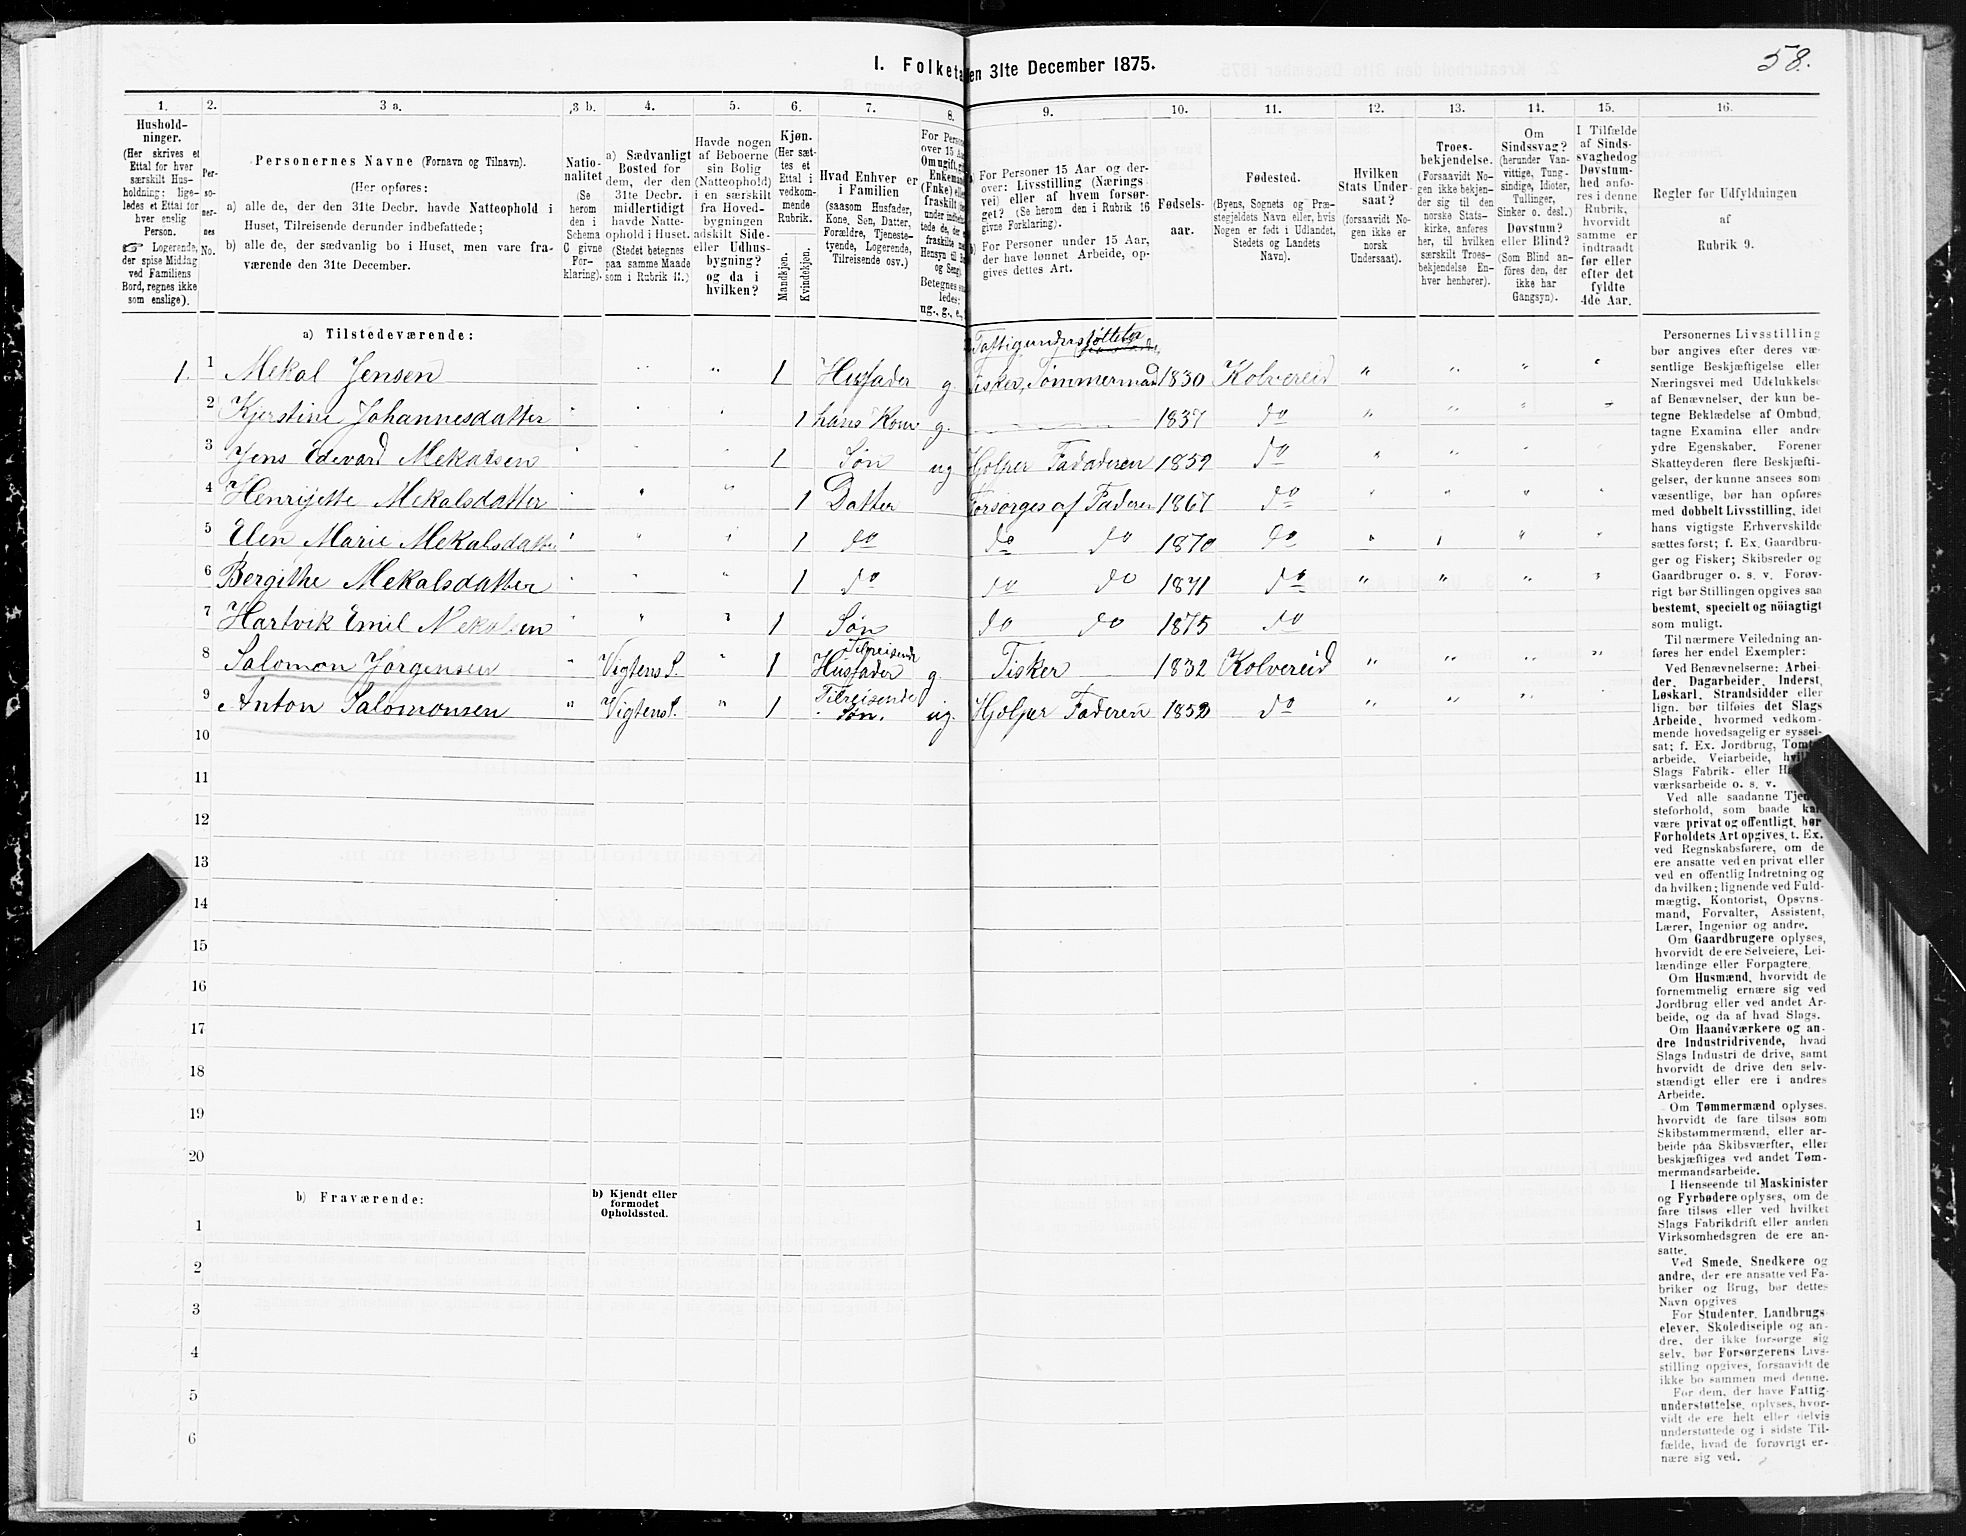 58.
I. Folketa en 31te December 1875.
1. 2. 3 a. 3 b. 4. 5. 6. 7. 8. 9. 10. 11. 12. 13. 14. 15. 16.
Hushold-
ninger.
(Her skrives et
Ettal for hver
særskilt Hus-
holdning; lige-
ledes et Ettal for
hver enslig
Person.
☞ Logerende,
der spise Middag
ved Familiens
Bord, regnes ikke
som enslige).
Per-
so-
ner-
nes
No.
Personernes Navne (Fornavn og Tilnavn).
(Her opføres:
a) alle de, der den 31te Decbr. havde Natteophold i
Huset, Tilreisende derunder indbefattede;
b) alle de, der sædvanlig bo i Huset, men vare fra-
værende den 31te December.
Natio-
nalitet
(Se
herom
den i
Schema
C givne
For-
klaring).
a) Sædvanligt
Bosted for
dem, der den
31te Decbr.
midlertidigt
havde Natte-
ophold i Huset.
(Stedet betegnes
paa samme Maade
som i Rubrik 11.)
Havde nogen
af Beboerne
sin Bolig
(Natteophold)
i en særskilt
fra Hoved-
bygningen
adskilt Side-
eller Udhus-
bygning?
og da i
hvilken?
Kjøn.
(Her sæt-
tes et
Ettal i
vedkom-
mende
Rubrik.
Mandkjøn.
Kvindekjøn.
Hvad Enhver er
i Familien
(saasom Husfader,
Kone, Søn, Datter,
Forældre, Tjeneste-
tyende, Logerende,
Tilreisende osv.)
For Perso
over 15 Aa
Om ugift, gi
Enkeman
(Fnke) elle
fraskilt
under indbe
tede de,
fraskilte
Hensyn til B
og Seng)
Betegnes
ledes:
ug., g., e.,
a) For Personer 15 Aar og der-
over: Livsstilling (Nærings-
vei) eller af hvem forsør-
get? (Se herom den i Rubrik 16
givne Forklaring).
b) For Personer under 15 Aar,
der have lønnet Arbeide, op-
gives dettes Art.
Fødsels-
aar.
Fødested.
(Byens, Sognets og Præ-
stegjeldets Navn eller, hvis
Nogen er født i Udlandet,
Stedets og Landets
Navn).
Hvilken
Stats Under-
saat?
(forsaavidt No-
gen ikke er
norsk
Undersaat).
Troes-
bekjendelse.
(Forsaavidt No-
gen ikke bekjen-
der sig til den
norske Stats-
kirke, anføres
her, til hvilken
særskilt Troes-
bekjendelse En-
hver henhører).
Om
Sindssvag?
(herunder Van-
vittige, Tung-
sindige, Idioter,
Tullinger,
Sinker o. desl.)
Døvstum?
eller Blind?
(Som Blind an-
føres den, der
ikke har
Gangsyn).
I Tilfælde
af Sinds-
svaghed og
Døvstum-
hed anfø-
res i denne
Rubrik,
hvorvidt
samme er
indtraadt
før eller
efter det
fyldte
4de Aar.
Regler for Udfyldningen
af
Rubrik 9.
a) Tilstedeværende:
Fattigunderstøttet
1. 1 Mekal Jensen " " 1 Husfader g. Fisker, Tømmermand 1830 Kolvereid " " " "
2 Kjerstine Johannesdatter " " " 1 hans Kone g. 1837 do " " " "
3 Jens Edevard Mekalsen " " " 1 Søn ug Hjelper Fadaderen 1859 do " " " "
4 Henrijette Mekalsdatter " " " 1 Datter Forsørges af Faderen 1867 do " " " "
5 Elen Marie Mekalsdatter " " " 1 do do do 1870 do " " " "
6 Bergithe Mekalsdatter " " " 1 do do do 1871 do " " " "
7 Hartvik Emil Mekalsen " " " 1 Søn do do 1875 do
8 Salomon Jørgensen " Vigtens P. " 1 Tilreisende Husfader g. Fisker 1832 Kolvereid " " " "
9 Anton Salomonsen " Vigtens P. " 1 Tilreisende Søn. ug. Hjelper Faderen 1852 do " " " "
10
11
12
13
14
15
16
17
18
19
20
b) Fraværende:
b) Kjendt eller
formodet
Opholdssted.
1
2
3
4
5
6
Personernes Livsstilling
bør angives efter deres væ-
sentlige Beskjæftigelse eller
Næringsvei med Udelukkelse
af Benævnelser, der kun be-
tegne Beklædelse af Ombud,
tagne Examina eller andre
ydre Egenskaber. Forener
Skatteyderen flere Beskjæfti-
gelser, der kunne ansees som
væsentlige, bør han opføres
med dobbelt Livsstilling, idet
hans vigtigste Erhvervskilde
sættes først; f. Ex. Gaardbru-
ger og Fisker; Skibsreder og
Gaardbruger o. s. v. Forøv-
rigt bør Stillingen opgives saa
bestemt, specielt og nöiagtigt
som muligt.
Til nærmere Veiledning an-
føres her endel Exempler:
Ved Benævnelserne: Arbei-
der, Dagarbeider, Inderst,
Løskarl, Strandsidder eller
lign. bør tilføies det Slags
Arbeide, hvormed vedkom-
mende hovedsagelig er syssel-
sat; f. Ex. Jordbrug, Tomt-
arbeide, Veiarbeide, hvil
Slags Fabrik- eller Ha
værksarbeide o. s. v.
Ved alle saadanne Tjen
steforhold, som baade kan
være privat og offentligt, bør
Forholdets Art opgives, t. Ex.
ved Regnskabsførere, om de
ere ansatte ved en privat eller
ved en offentlig Indretning og
da hvilken; lignende ved Fuld-
mægtig, Kontorist, Opsyns-
mand, Forvalter, Assistent,
Lærer, Ingeniør og andre.
Om Gaardbrugere oplyses,
hvorvidt de ere Selveiere, Lei-
lændinge eller Forpagtere.
Om Husmænd, hvorvidt de
fornemmelig ernære sig ved
Jordbrug eller ved andet Ar-
beide, og da af hvad Slags.
Om Haandværkere og an-
dre Industridrivende, hvad
Slags Industri de drive, samt
hvorvidt de drive den selv-
stændigt eller ere i andres
Arbeide.
Om Tømmermænd oplyses,
hvorvidt de fare tilsøs som
Skibstømmermænd, eller ar-
beide paa Skibsværfter, eller
beskjæftiges ved andet Tøm-
mermandsarbeide.
I Henseende til Maskinister
og Fyrbødere oplyses, om de
fare tilsøs eller ved hvilket
Slags Fabrikdrift eller anden
Virksomhedsgren de ere an-
satte.
Ved Smede, Snedkere og
andre, der ere ansatte ved Fa-
briker og Brug, bør dettes
Navn opgives
For Studenter, Landbrugs-
elever, Skoledisciple og an-
dre, der ikke forsørge sig
selv, bør Forsørgerens Livs-
stilling opgives, forsaavidt de
ikke bo sammen med denne.
For dem, der have Fattig-
understøttelse, oplyses, hvor-
vidt de ere helt eller delvis
understøttede og i sidste Til-
fælde, hvad de forøvrigt er-
nære sig ved.